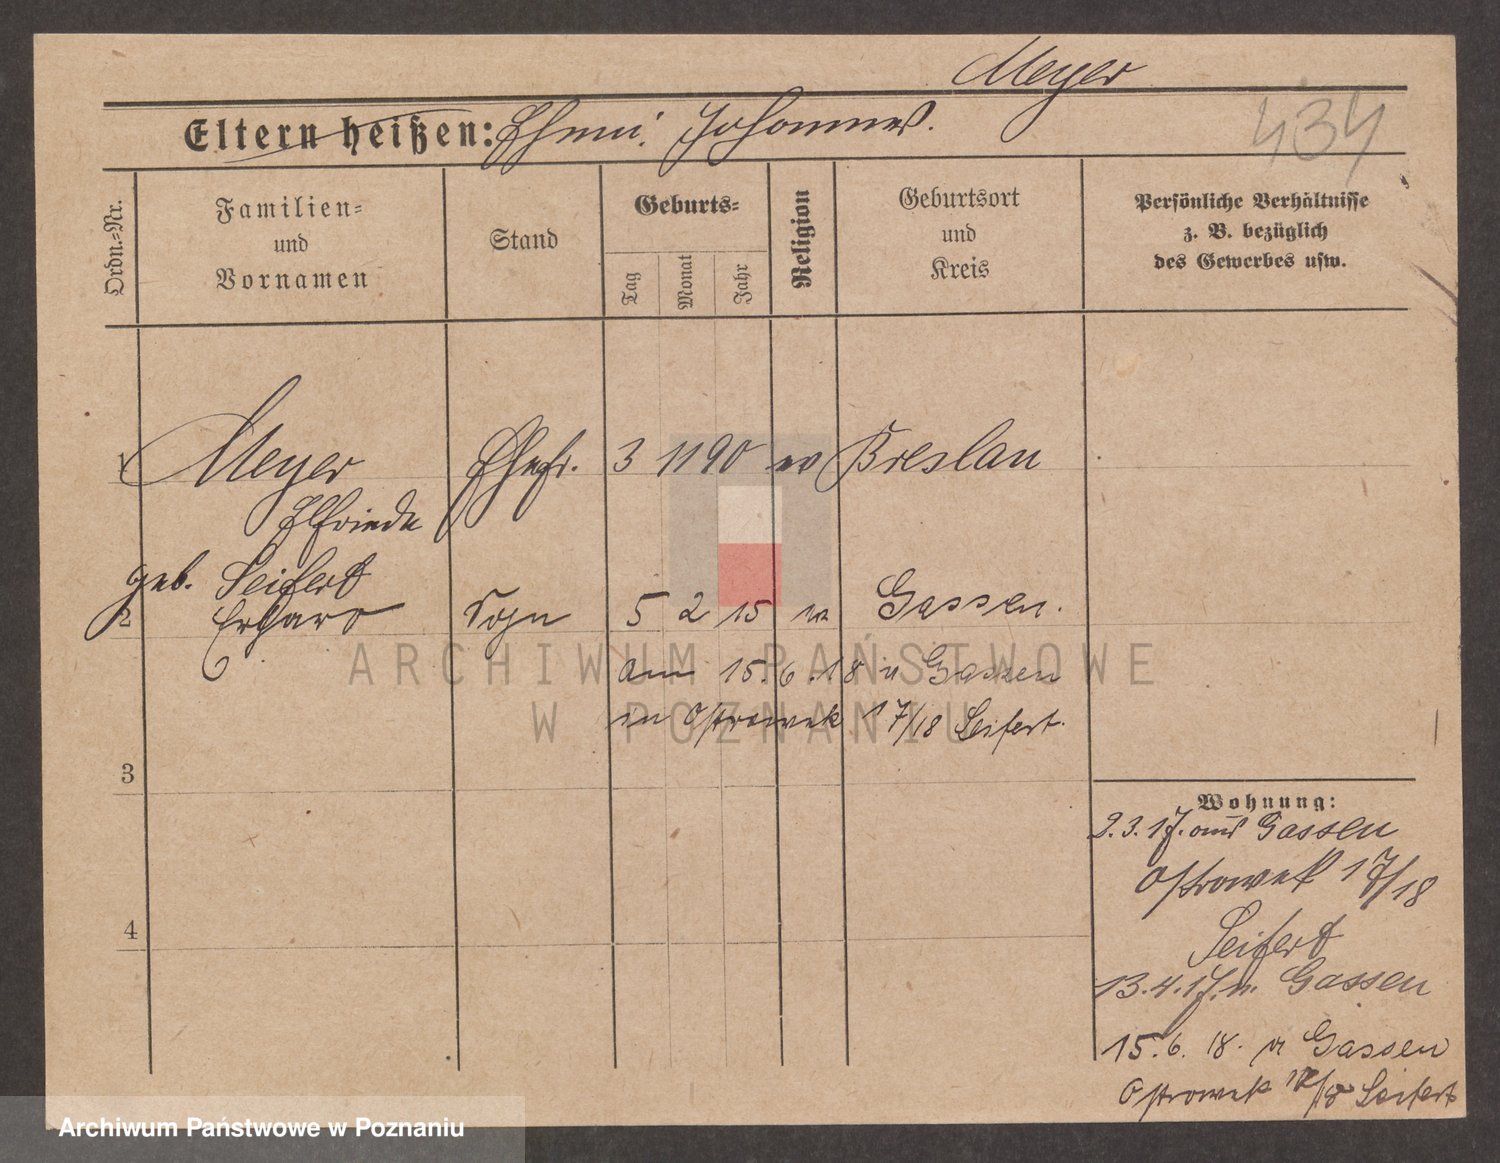 Meyer
Eltern heißen: Ehem: Johannes.
434
Ordn.-Nr.
Familien-
und
Vornamen
Stand
Geburts-
Tag
Monat
Jahr
Religion
Geburtsort
und
Kreis
Persönliche Verhältnisse
z. B. bezüglich
des Gewerbes usw.
1 Meyer Ehefr. 3 11 90 ev Breslau
Elfriede
geb. Seifert
2 Erhard Sohn 5 2 15 Gassen.
am 15.6.18 Gassen
in Ostrowek 17/18 Seifert.
3
4
Wohnung:
2.3.17. aus Gassen
Ostrowek 17/18
Seifert
13.4.17. n. Gassen
15.6.18. Gassen
Ostrowek 17/18 Seifert
ARCHIWUM PAŃSTWOWE
W POZNANIU
Archiwum Państwowe w Poznaniu